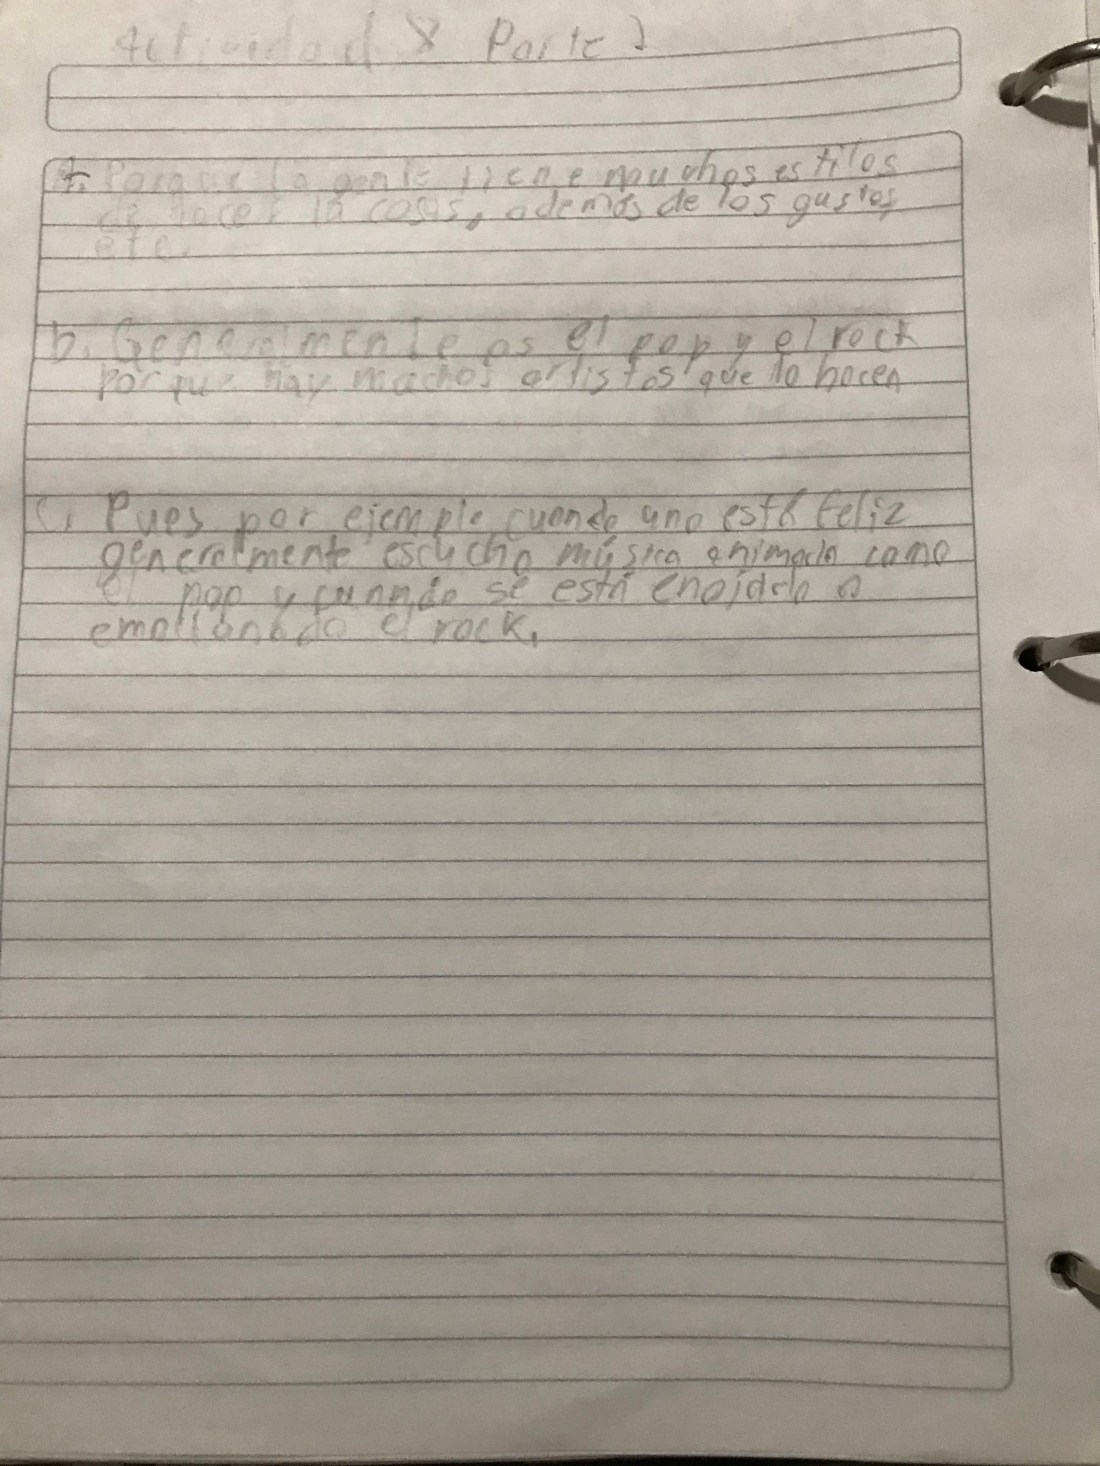 Actividad 8 Parte 1
a. Porque la gente tiene muchos estilos
de hacer la cosas, además de los gustos
etc.
b. Generalmente es el pop y el rock
porque hay muchos artistas que lo hacen
c. Pues por ejemplo cuando uno está feliz
generalmente escucha música animada como
el pop y cuando se está enojado o
el rock.